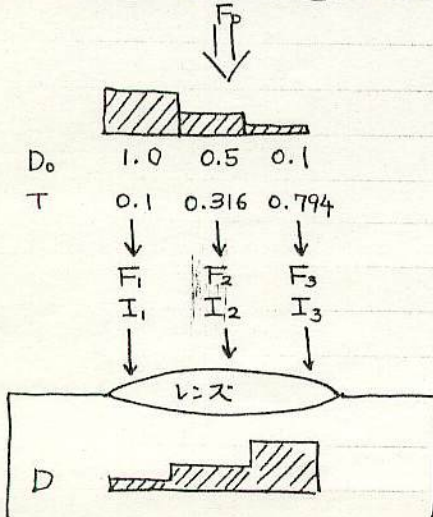 F₀
D₀ 1.0 0.5 0.1
T 0.1 0.316 0.794
F₁ F₂ F₃
I₁ I₂ I₃
レンズ
D